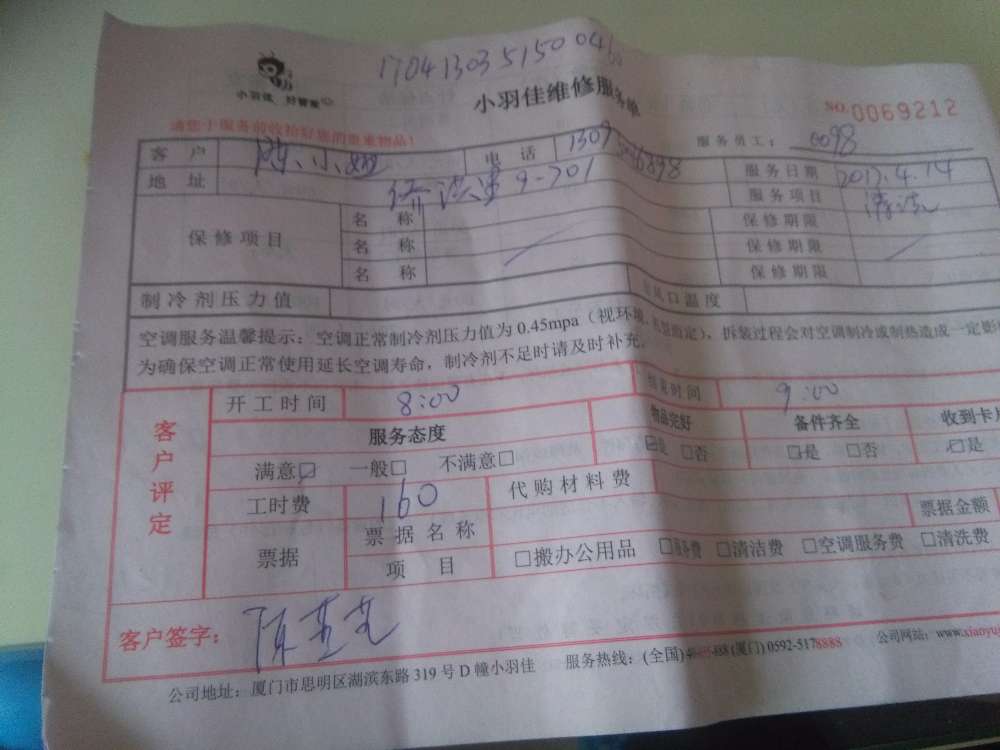 小羽佳 好管家
小羽佳维修服务单
NO.0069212
请您于服务前收拾好您的贵重物品!
服务员工: 0098
客户 陈小姐 电话
服务日期 2017.4.14
地址 9-701
服务项目 清洗
保修项目 名称 保修期限
名称 保修期限
名称 保修期限
制冷剂压力值 风口温度
空调服务温馨提示:空调正常制冷剂压力值为0.45mpa(视环境、机型而定),拆装过程会对空调制冷或制热造成一定影
为确保空调正常使用延长空调寿命,制冷剂不足时请及时补充。
客户评定
开工时间 8:00 结束时间 9:00
服务态度 物品完好 备件齐全 收到卡片
满意☑ 一般□ 不满意□ ☑是 □否 □是 □否 □是
工时费 160 代购材料费
票据 票据名称 票据金额
项目 □搬办公用品 □服务费 □清洁费 □空调服务费 □清洗费
客户签字:
公司地址:厦门市思明区湖滨东路319号D幢小羽佳 服务热线:(全国) (厦门) 0592-5178888 公司网站:www.xiaoyu